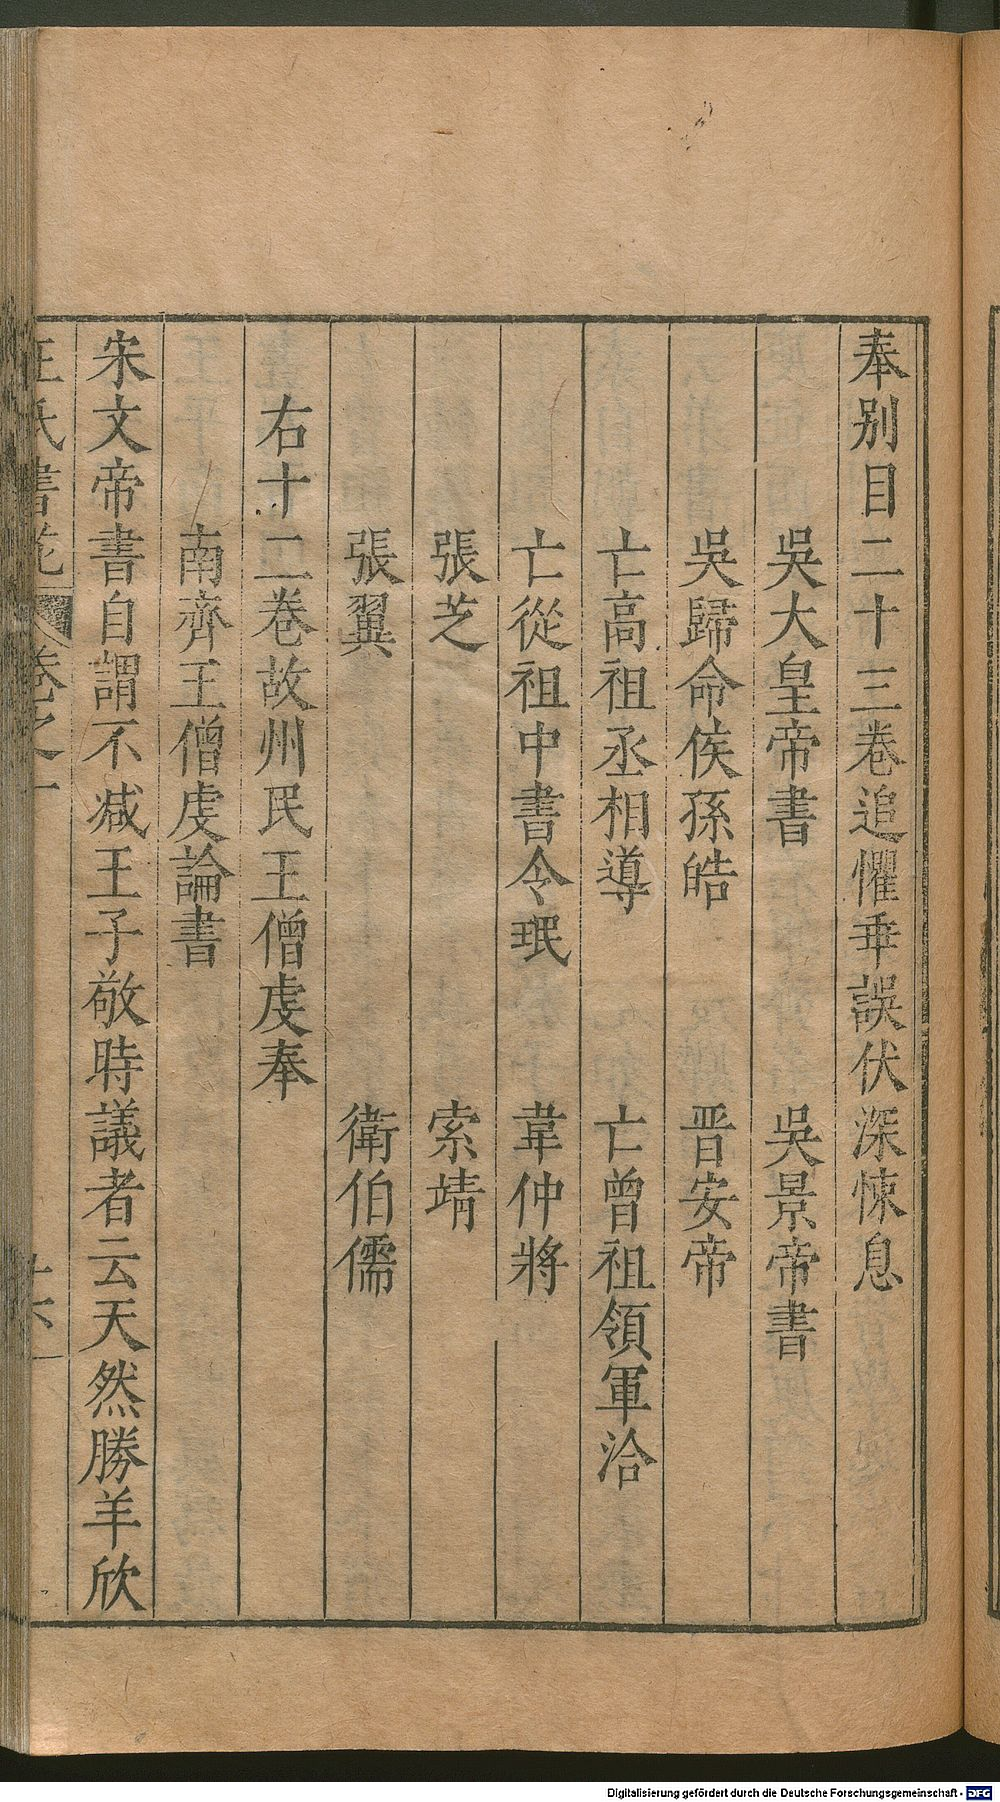 奉别目二十三卷追懼乖誤伏深悚息
吳大皇帝書　吳景帝書
吳歸命侯孫皓　晋安帝
亡高祖丞相導　亡曾祖領軍洽
亡從祖中書令珉　韋仲將
張芝　索靖
張翼　衛伯儒
右十二卷故州民王僧虔奉
南齊王僧虔論書
宋文帝書自謂不减王子敬時議者云天然勝羊欣
王氏書苑　卷之一　十六
Digitalisierung gefördert durch die Deutsche Forschungsgemeinschaft - DFG